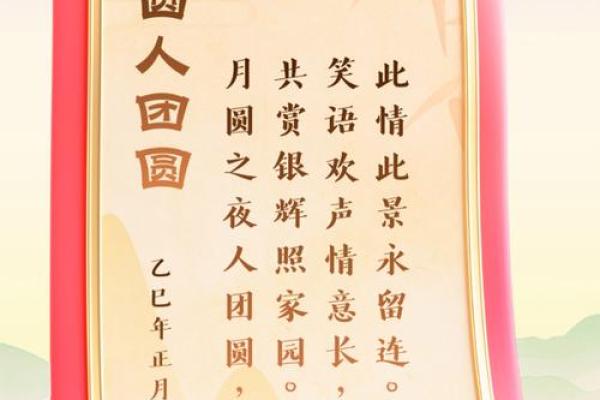 圆人团圆
乙巳年正月
月圆之夜人团圆，
共赏银辉照家园。
笑语欢声情意长，
此情此景永留连。